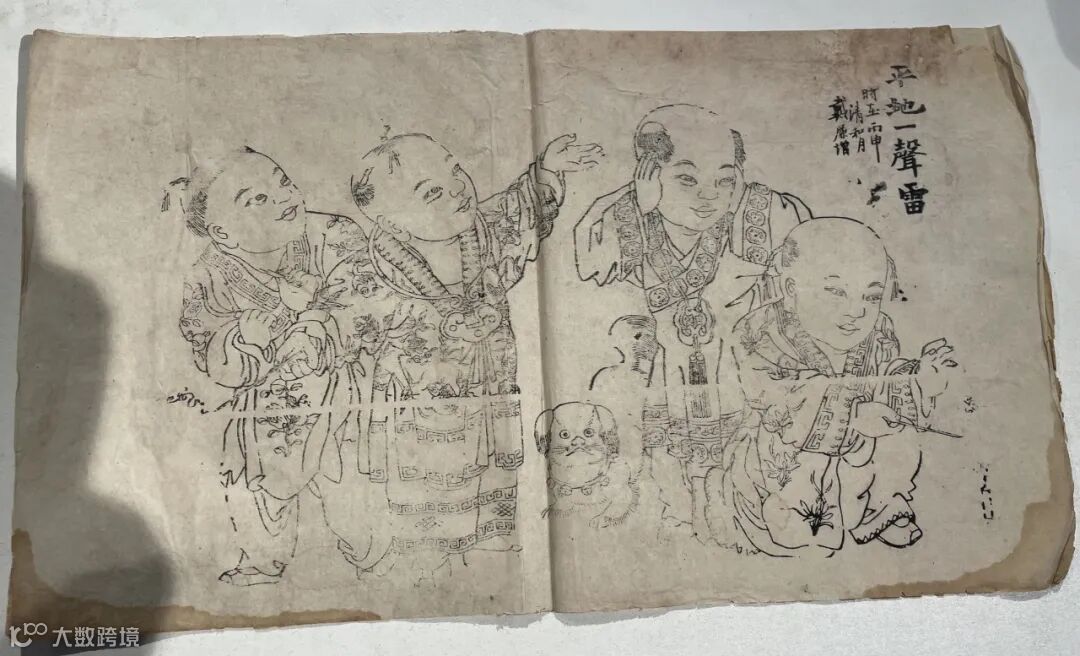 平地一聲雷
時在丙申
清和月
戴廉增
大数跨境